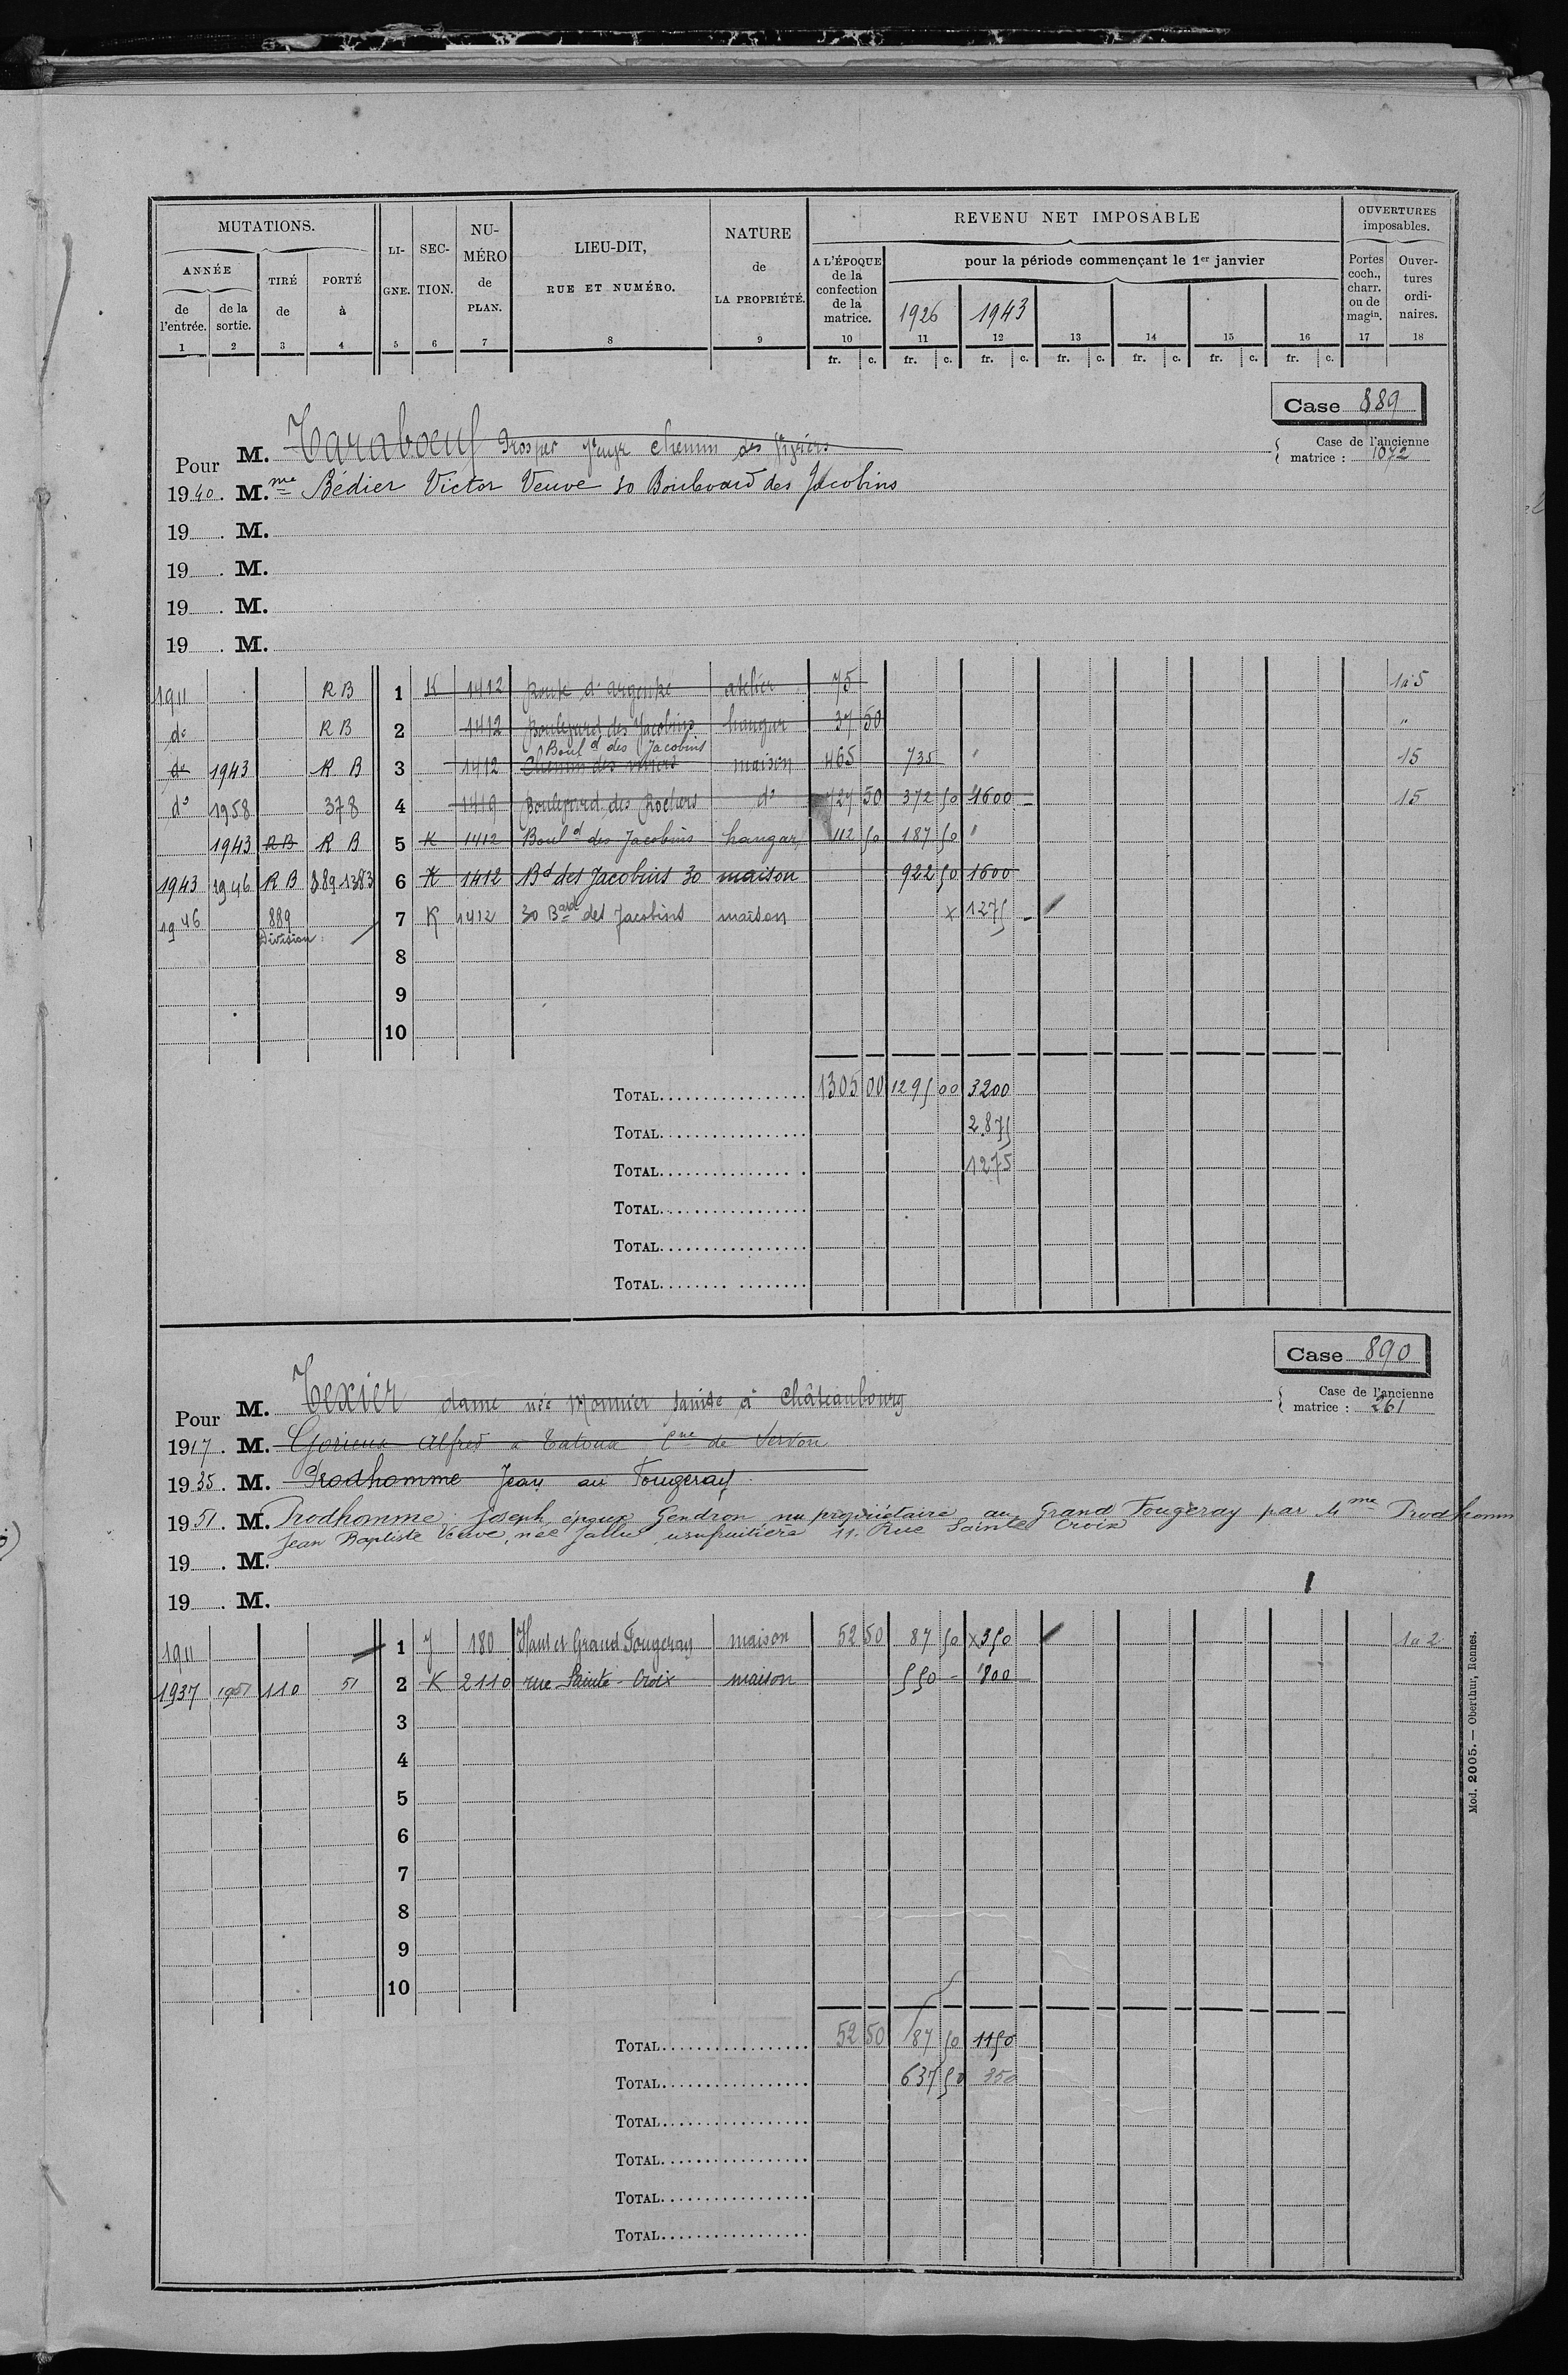 MUTATIONS. LI-GNE. SEC-TION. NU-MÉRO de PLAN. LIEU-DIT, RUE ET NUMÉRO. NATURE de LA PROPRIÉTÉ. REVENU NET IMPOSABLE OUVERTURES imposables.
ANNÉE TIRÉ de PORTÉ à A L'ÉPOQUE de la confection de la matrice. pour la période commençant le 1er janvier Portes coch., charr. ou de magin. Ouver-tures ordi-naires.
de l'entrée. de la sortie. 1926 1943
1 2 3 4 5 6 7 8 9 10 11 12 13 14 15 16 17 18
fr. c. fr. c. fr. c. fr. c. fr. c. fr. c. fr. c.
Case 889
Pour M. Taraboeuf Prosper chemin des
Case de l'ancienne matrice : 1072
1940. M.me Bédier Victor Veuve 30 Boulevard des Jacobins
19 . M.
19 . M.
19 . M.
19 . M.
1911 R B 1 K 1412 atelier 75 1à5
do R B 2 1412 Boulevard des Jacobins hangar 37 50 "
Bould des Jacobins
do 1943 R B 3 1412 Chemin des maison 465 735 " 15
do 1958 378 4 1419 Boulevard des Rochers do 727 50 372 50 1600 15
1943 RB R B 5 K 1412 Bould des Jacobins hangar 112 50 187 50 "
1943 1946 R B 889.1383 6 K 1412 Bd des Jacobins 30 maison 922 50 1600
1946 889 Division 7 K 1412 30 Bard des Jacobins maison x 1275
8
9
10
TOTAL 1305 00 1295 00 3200
TOTAL 2.875
TOTAL 1275
TOTAL
TOTAL
TOTAL
Case 890
Pour M. Texier dame née Monnier à Châteaubourg
Case de l'ancienne matrice : 261
1917. M. Gorieux Alfred a Cne de
1935. M. Prodhomme Jean au Fougeray
1951. M. Prodhomme Joseph époux Gendron nu propriétaire au Grand Fougeray par Mme Prodhomm
Jean Baptiste Veuve, née usufruitière 11. Rue Sainte Croix
19 . M.
19 . M.
1911 1 J 180 Haut et Grand Fougeray maison 52 50 87 50 x350 1à2
1937 1951 110 51 2 K 2110 rue Sainte-Croix maison 550 800
3
4
5
6
7
8
9
10
TOTAL 52 50 87 50 1150
TOTAL 637 50 350
TOTAL
TOTAL
TOTAL
TOTAL
Mod. 2005. — Oberthur, Rennes.